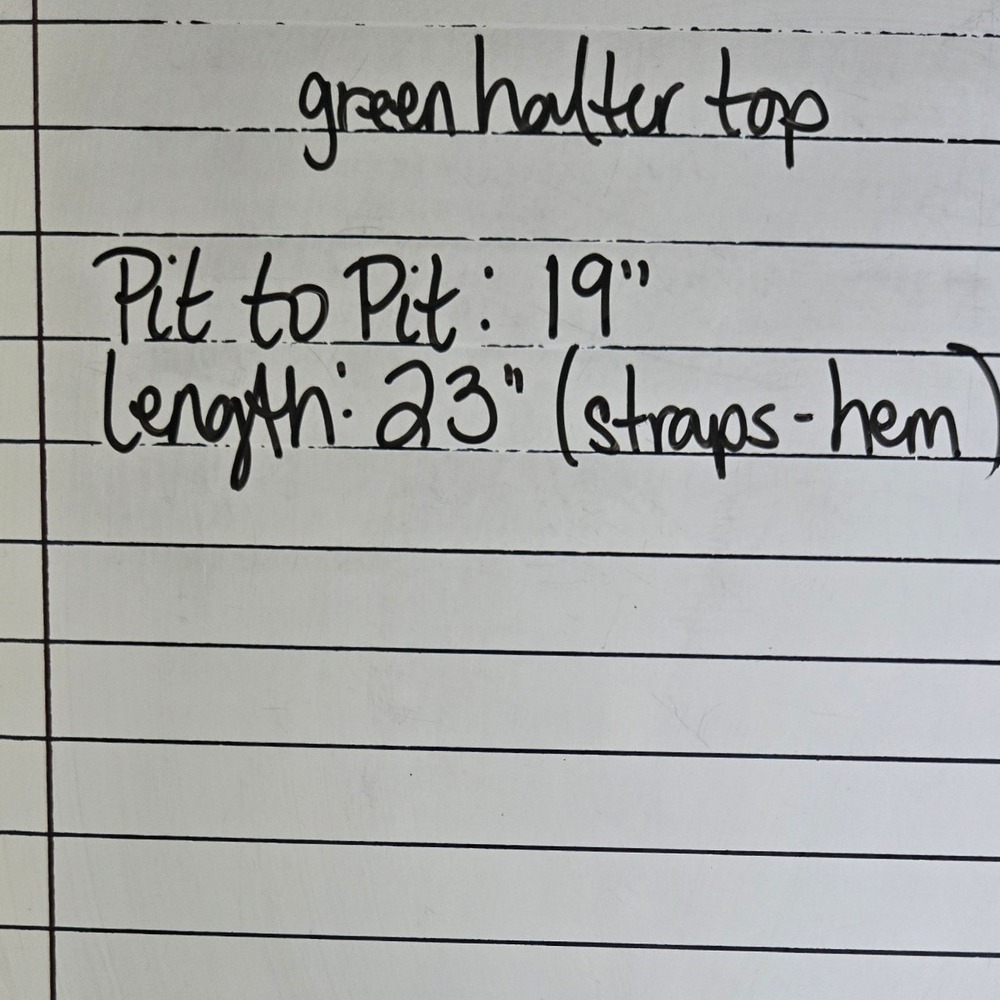 green halter top
Pit to Pit: 19"
Length: 23" (straps-hem)